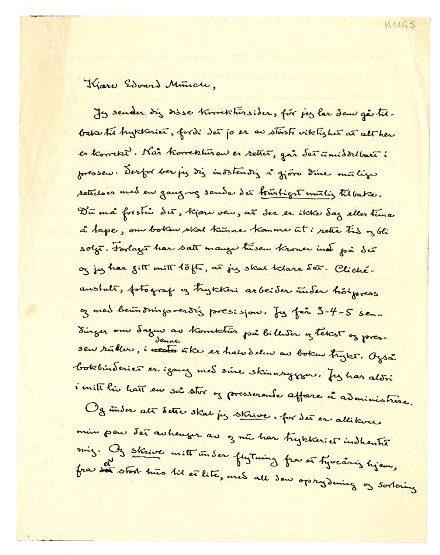 K1163
Kjære Edvard Munch,
Jeg sender dig disse korrektursider, för jeg lar dem gå til-
bake til trykkeriet, fordi det jo er av störste viktighet at alt her
er korrekt. Når korrekturen er rettet, går det umiddelbart i
pressen. Derfor ber jeg dig indstendig å gjöre dine mulige
rettelser med en gang og sende det hurtigst mulig tilbake.
Du må forstå det, kjære ven, at der er ikke dag eller time
å tape, om boken skal kunne komme ut i rette tid og bli
solgt. Forlaget har satt mange tusen kroner ind på det
og jeg har gitt mitt löfte, at jeg skal klare det. Cliché-
anstalt, fotograf og trykkeri arbeider under höipress
og med beundringsverdig presisjon. Jeg får 3-4-5 sen-
dinger om dagen av korrektur på billeder og tekst og pres-
sen rubler, i denne uke er halvdelen av boken trykt. Også
bokbinderiet er igang med sine skinnrygger. Jeg har aldri
i mitt liv hatt en så stor og presserende affære å administrere.
Og under alt dette skal jeg skrive, for det er allikevel
min pen det avhenger av og nu har trykkeriet indhentet
mig. Og skrive mitt under flytning fra et tyveårig hjem,
fra et stort hus til et lite, med all den oprydning og sortering